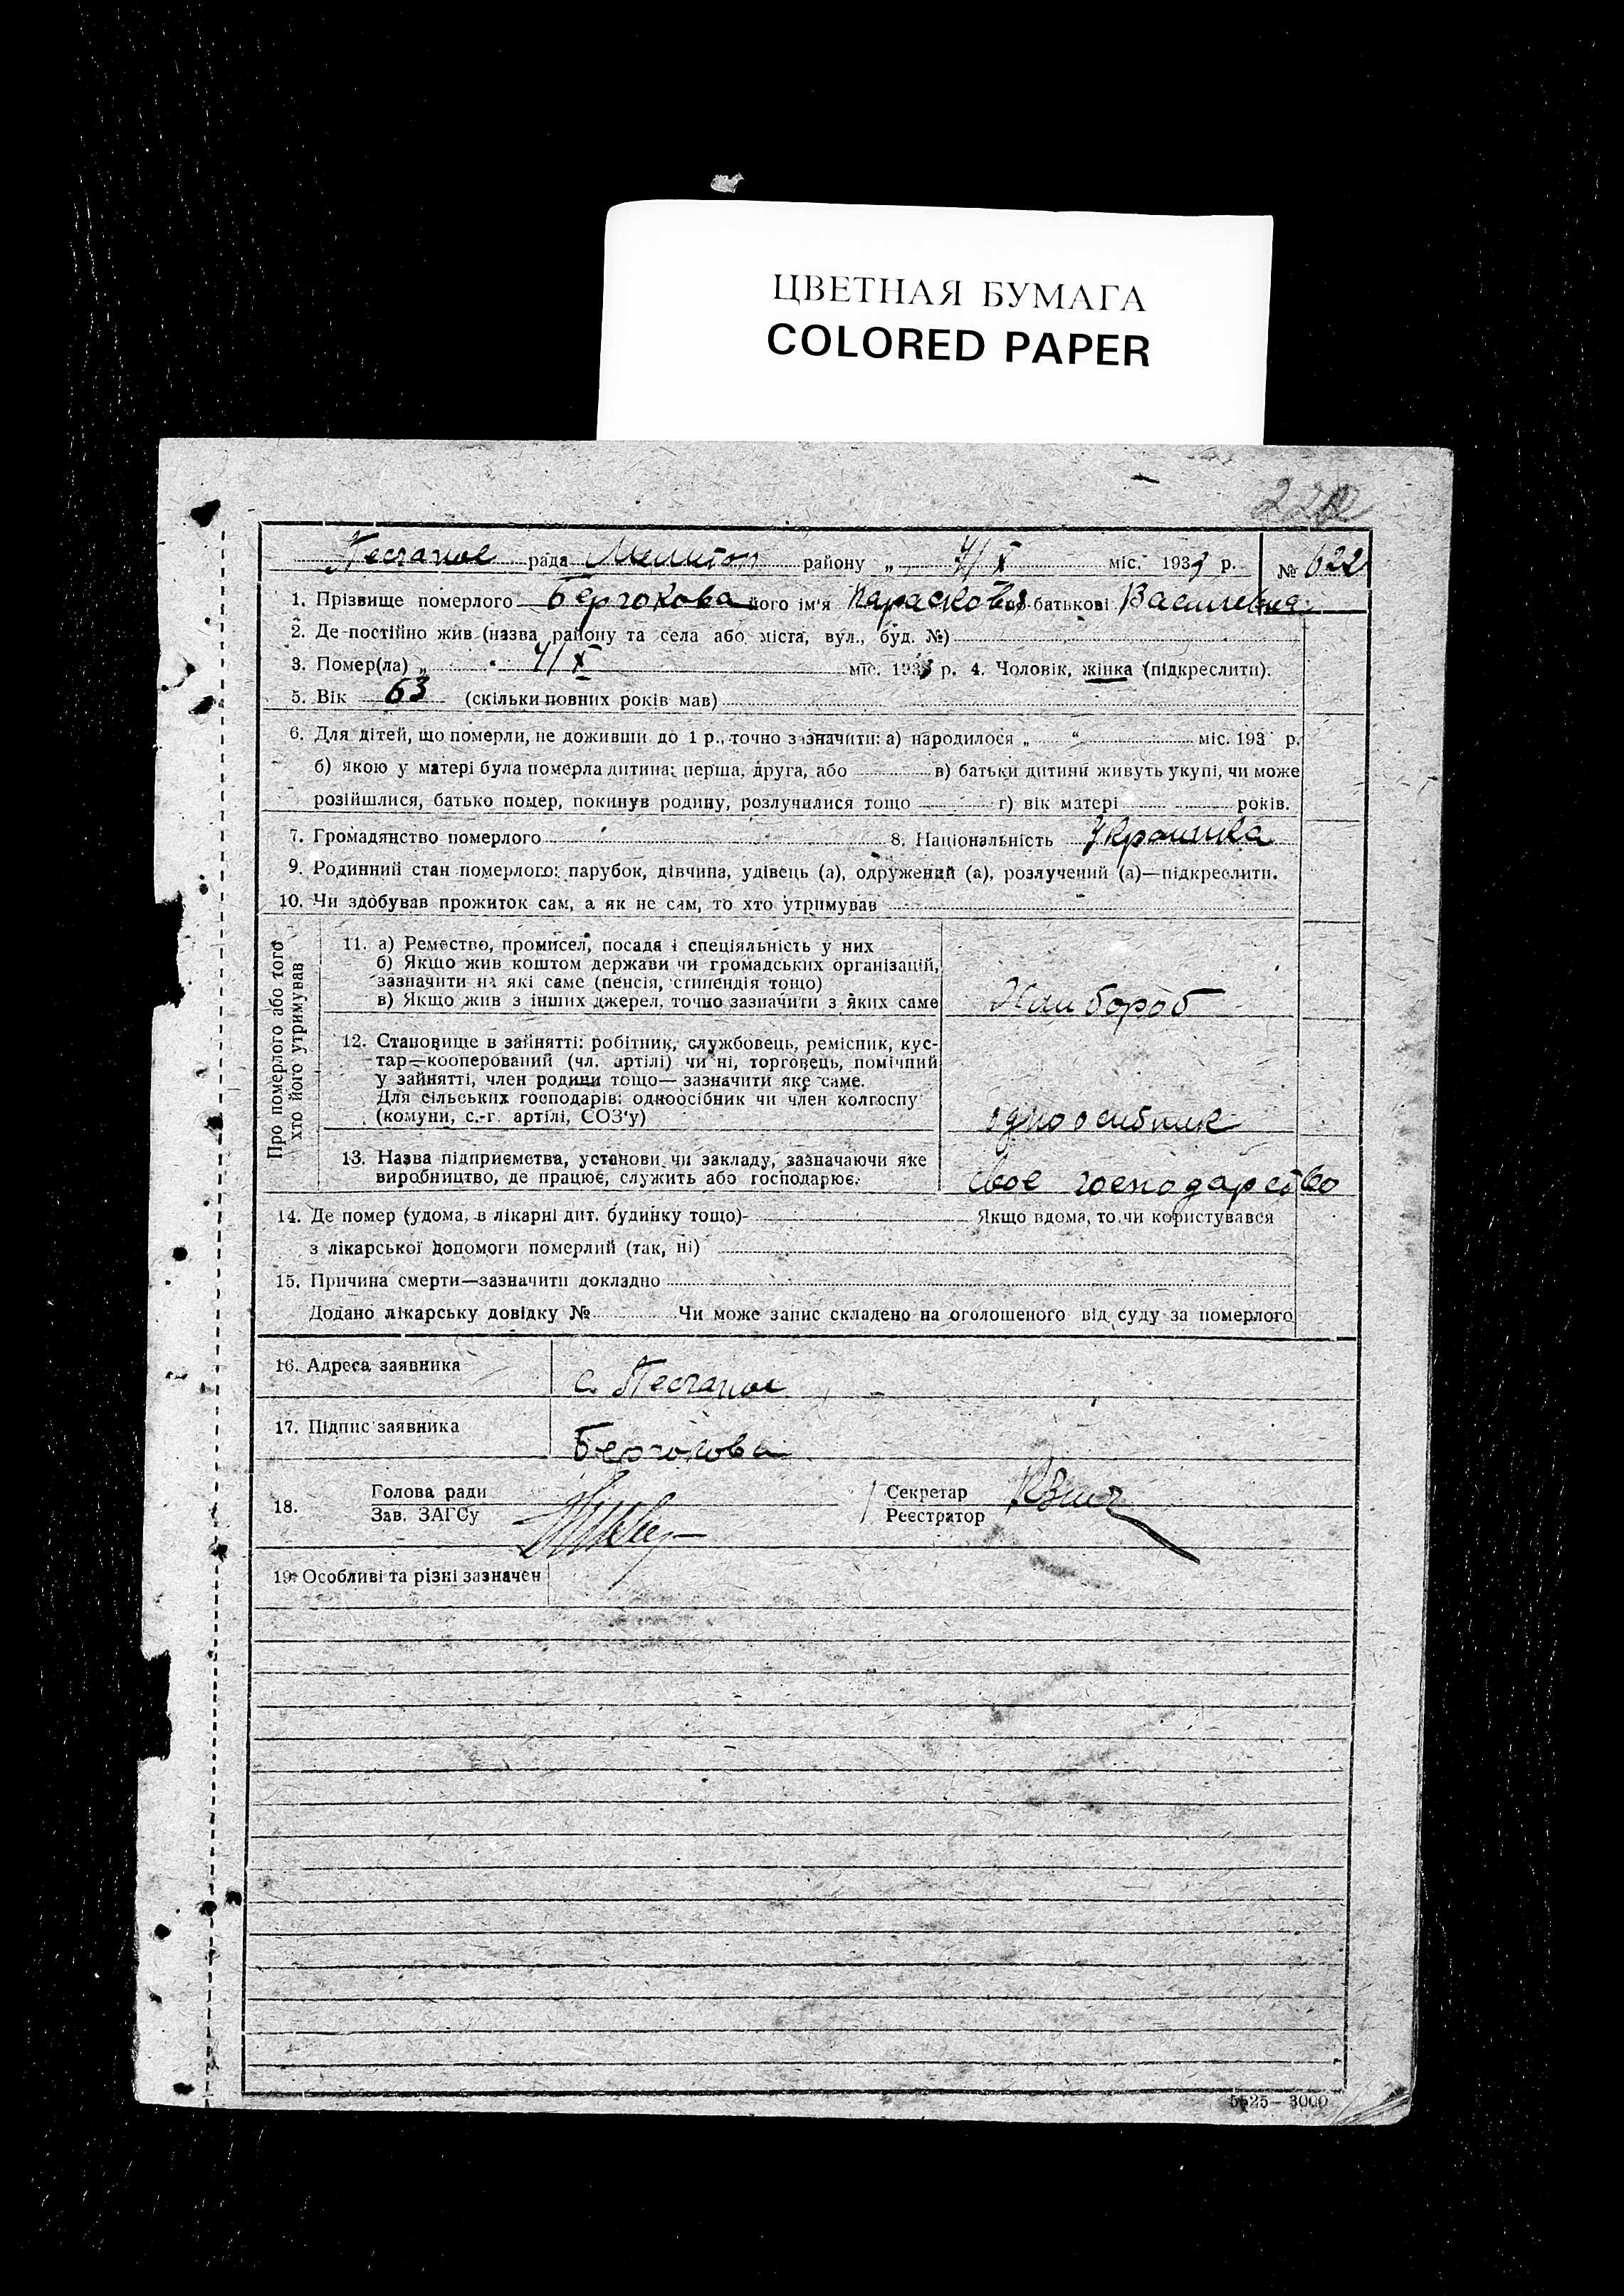 ЦВЕТНАЯ БУМАГА
COLORED PAPER
Песчаное рада Мелитоп району „ 7/X міс. 1933 р. № 622
1. Прізвище померлого його ім'я Парасковія по-батькові Василевна
2. Де постійно жив (назва району та села або міста, вул., буд. №)
3. Помер(ла) „ " 7/X міс. 1933 р. 4. Чоловік, жінка (підкреслити).
5. Вік 63 (скільки повних років мав)
6. Для дітей, що померли, не доживши до 1 р., точно зазначити: а) народилося „ " міс. 193 р.
б) якою у матері була померла дитина: перша, друга, або в) батьки дитини живуть укупі, чи може
розійшлися, батько помер, покинув родину, розлучилися тощо г) вік матері років.
7. Громадянство померлого 8. Національність Украинка
9. Родинний стан померлого: парубок, дівчина, удівець (а), одружений (а), розлучений (а)—підкреслити.
10. Чи здобував прожиток сам, а як не сам, то хто утримував
Про померлого або того
хто його утримував
11. а) Ремество, промисел, посада і спеціяльність у них
б) Якщо жив коштом держави чи громадських організацій,
зазначити на які саме (пенсія, стипендія тощо)
в) Якщо жив з інших джерел, точно зазначити з яких саме
Хлибороб
12. Становище в зайнятті: робітник, службовець, ремісник, кус-
тар—кооперований (чл. артілі) чи ні, торговець, помічний
у зайнятті, член родини тощо— зазначити яке саме.
Для сільських господарів: одноосібник чи член колгоспу
(комуни, с.-г артілі, СОЗ'у)
одноосибник
13. Назва підприємства, установи чи закладу, зазначаючи яке
виробництво, де працює, служить або господарює.
свое господарство
14. Де помер (удома, в лікарні дит. будинку тощо)- Якщо вдома, то чи користувався
з лікарської допомоги померлий (так, ні)
15. Причина смерти—зазначити докладно
Додано лікарську довідку № Чи може запис складено на оголошеного від суду за померлого
16. Адреса заявника с. Песчаное
17. Підпис заявника
18. Голова ради
Зав. ЗАГСу
Секретар
Реєстратор
19. Особливі та різні зазначен
5525— 3000